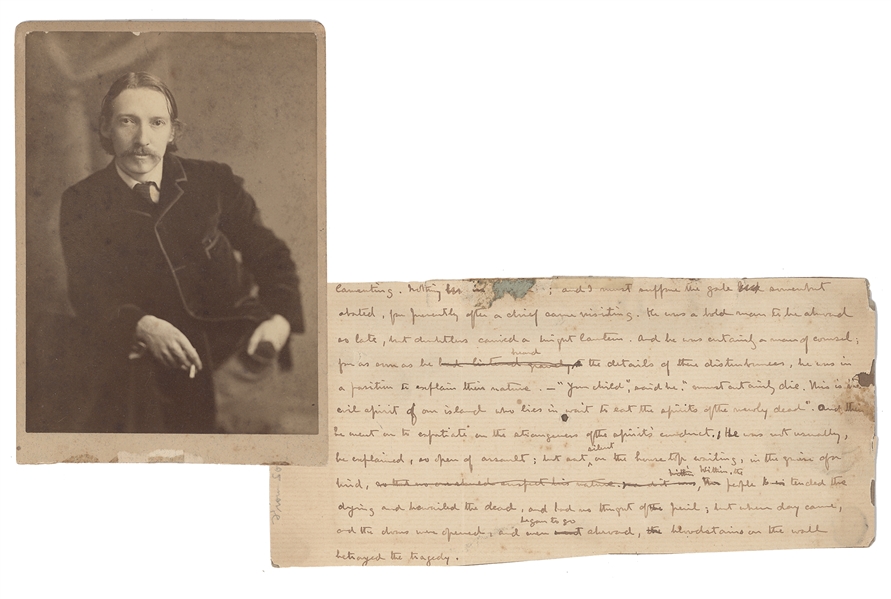 lamenting. Nothing in ; and I must suppose the gale somewhat
abated, for presently after a chief came visiting. He was a bold man to be abroad
so late, but doubtless carried a bright lantern. And he was certainly a man of counsel;
for as soon as he heard the details of these disturbances, he was in
a position to explain their nature. — "Your child", said he, "must certainly die. This is the
evil spirit of our island who lies in wait to eat the spirits of the newly dead". And then
he went on to expatiate on the strangeness of the spirit's conduct. He was not usually,
he explained, so open of assault; but sat silent on the house top waiting, in the guise of a
bird, Within, the people tended the
dying and bewailed the dead, and had no thought of the peril; but when day came,
and the doors were opened, and men began to go abroad, the bloodstains on the wall
betrayed the tragedy.